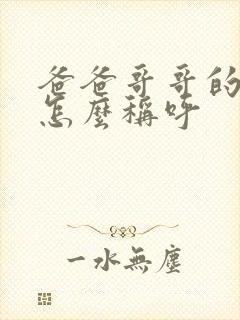 爸爸哥哥的
怎麼稱呼
一水無塵